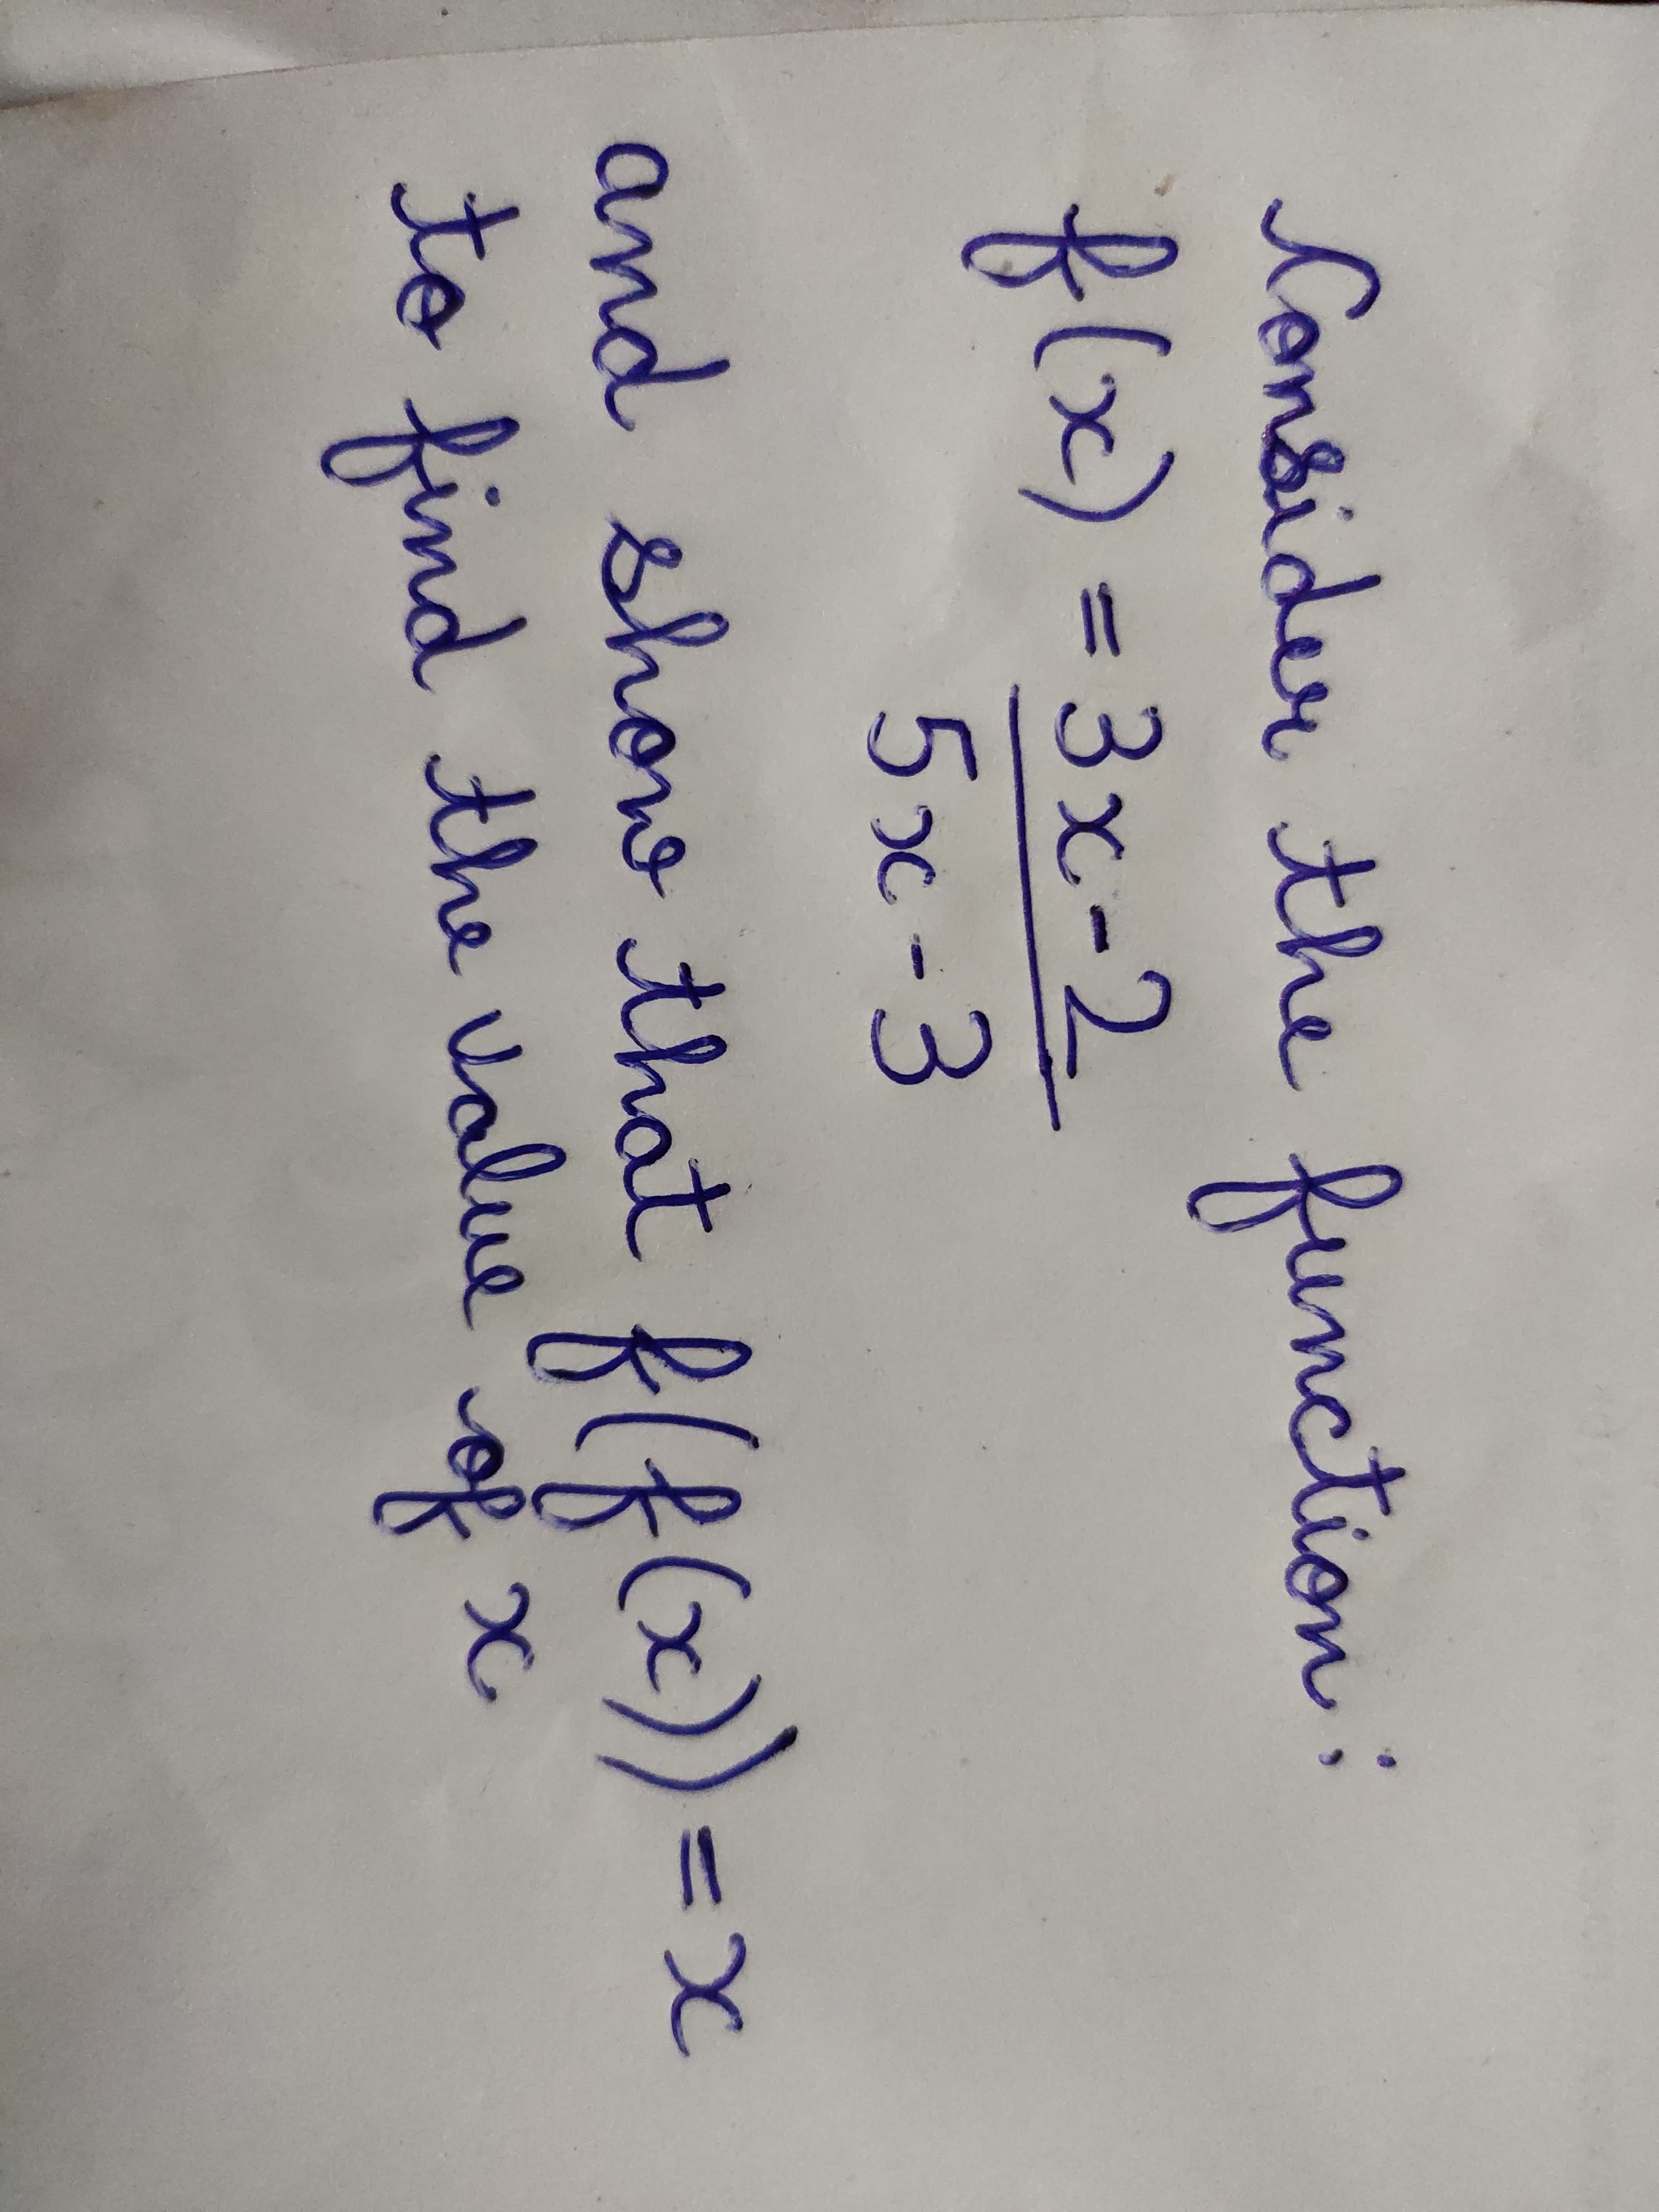 Consider the function:
f(x) = 3x-2
5x-3
and show that f(f(x)) = x
to find the value of x